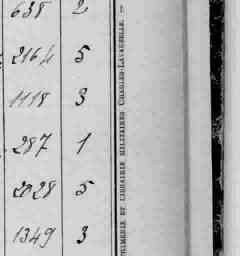 638 2
2164 5
1118 3
287 1
2028 5
1349 3
IMPRIMERIE ET LIBRAIRIE MILITAIRES CHARLES-LAVAUZELLE. —